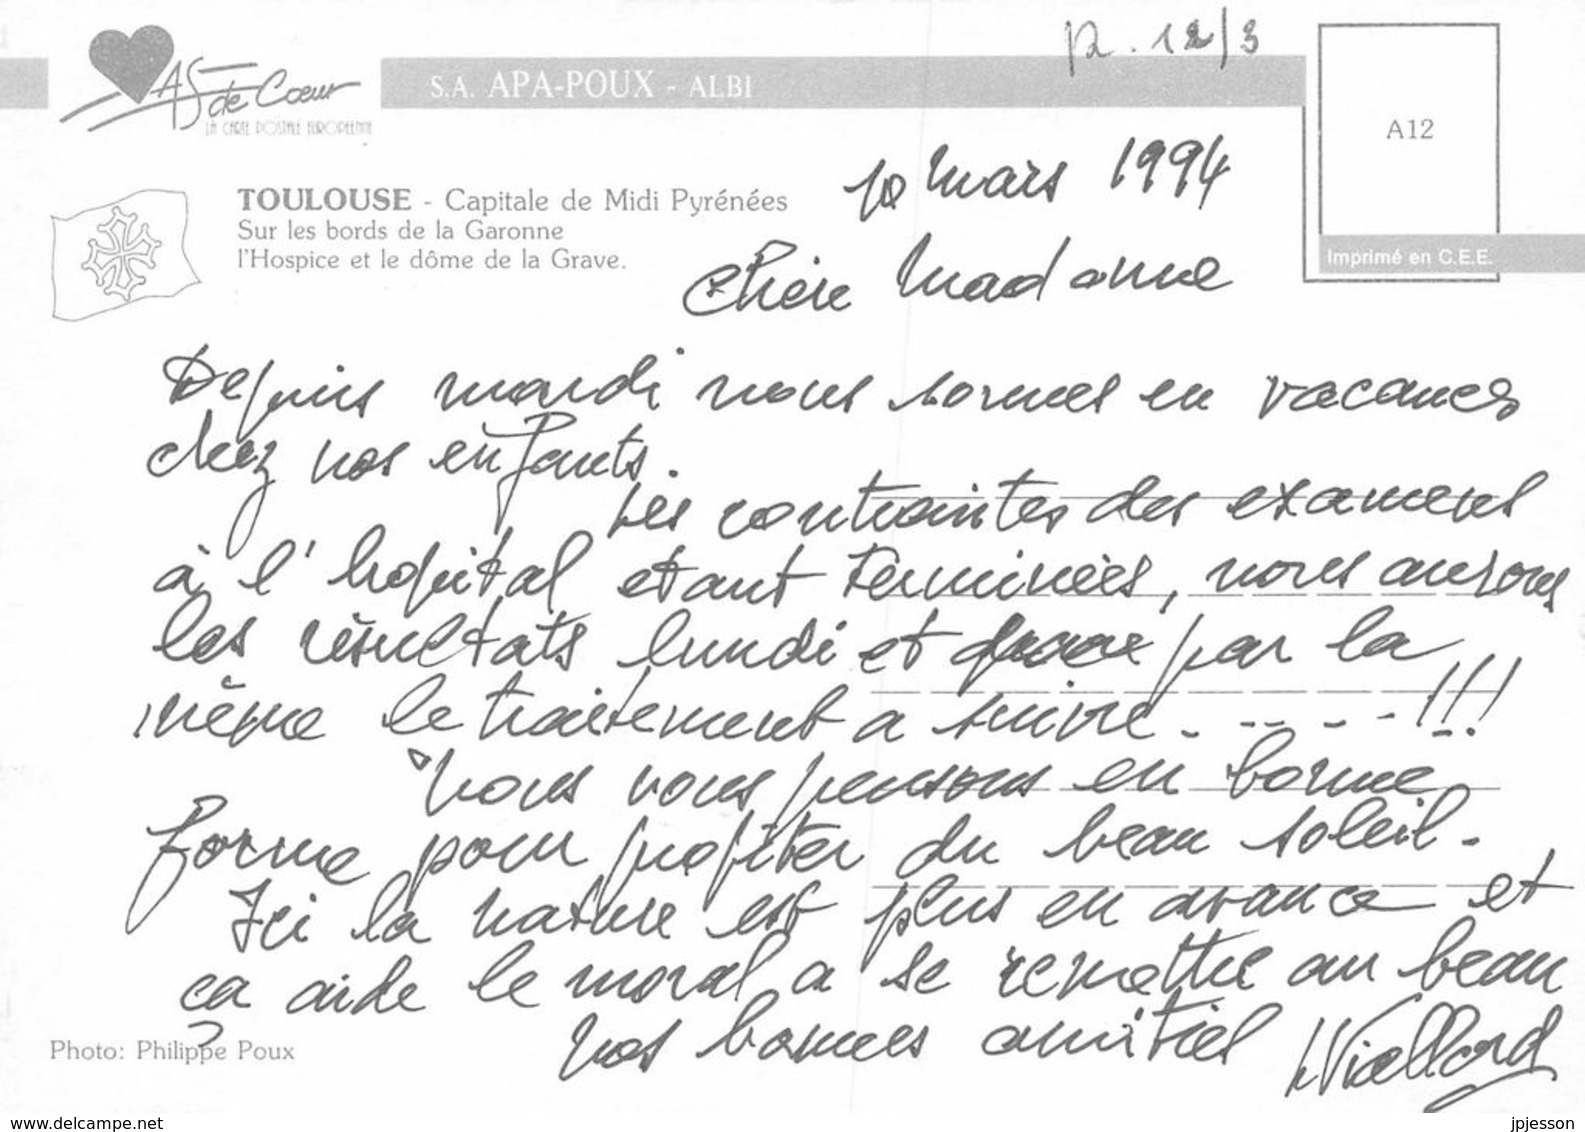 As de Cœur
LA CARTE POSTALE EUROPÉENNE
S.A. APA-POUX - ALBI
R. 12/3
A12
Imprimé en C.E.E.
TOULOUSE - Capitale de Midi Pyrénées
Sur les bords de la Garonne
l'Hospice et le dôme de la Grave.
10 mars 1994
Chère Madame
Depuis mardi nous sommes en vacances
chez nos enfants.
Les contraintes des examens
à l'hopital etant terminées, nous aurons
les résultats lundi et par la
même le traitement a suivre - - - - - !!!
Nous vous pensons en bonne
forme pour profiter du beau soleil.
Ici la nature est plus en avance et
ça aide le moral a se remettre au beau
Nos bonnes amitiés Viallard
Photo: Philippe Poux
www.delcampe.net
jpjesson